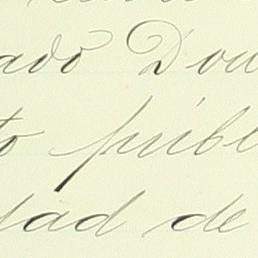 ado Don
to públ
dad de